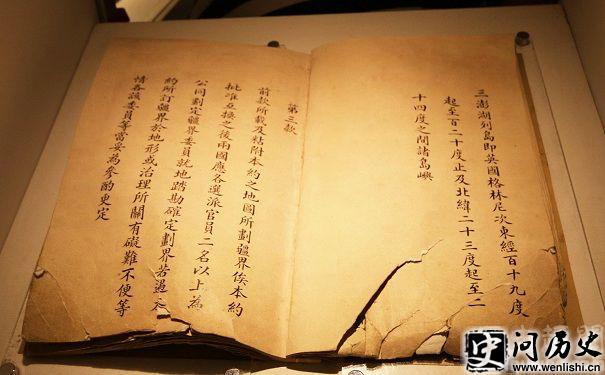 三澎湖列島即英國格林尼次東經百十九度
起至百二十度止及北緯二十三度起至二
十四度之間諸島嶼
第三款
前款所載及粘附本約之地圖所劃疆界俟本約
批准互換之後兩國應各選派官員二名以上為
公同劃定疆界委員就地踏勘確定劃界若遇
約所訂疆界於地形或治理所關有礙難不便等
情各該委員等當妥為參酌更定
问历史
www.wenlishi.cn